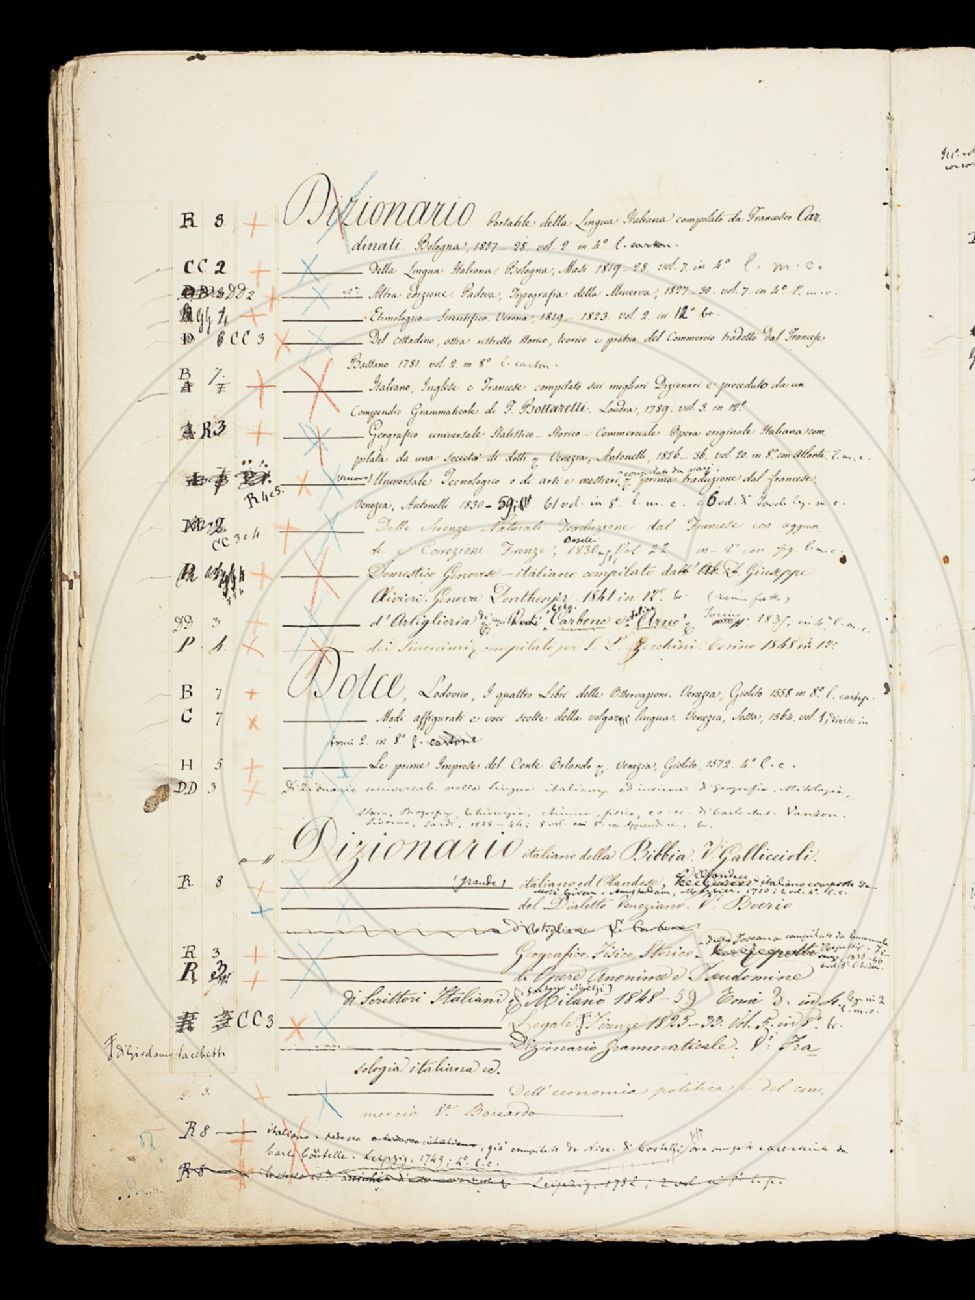 R 8 Dizionario Portatile della Lingua Italiana compilato da Francesco Car
dinali. Bologna, 1827-28 vol. 2. in 4º l. carton.
CC 2 della Lingua Italiana, Bologna, Masi 1819-28. vol. 7. in 4º l. m. c.
DD 2 Altra edizione. Padova, Tipografia della Minerva, 1827-30. vol. 7. in 4º l. m. c.
Etimologico-Scientifico. Verona, 1819-1823. vol. 2. in 12º br.
CC 3 Del cittadino, ossia ristretto storico, teorico e pratico del Commercio tradotto dal Francese
Bassano 1781. vol. 2. in 8º l. carton.
B 7. Italiano, Inglese e Francese compilato sui migliori Dizionari e preceduto da un
Compendio Grammaticale di F. Bottarelli. Londra, 1789. vol. 3. in 12º
R 3 Geografico universale Statistico-Storico-Commerciale Opera originale Italiana com
pilata da una società di dotti Venezia, Antonelli, 1826-36. vol. 20. in 8º con Atlante, l. m. c.
R 4 e 5. (nuovo) Universale Tecnologico o di arti e mestieri, compilato da varj prima traduzione dal francese,
Venezia, Antonelli 1830-59; 61 vol. in 8º l. m. c. e 6 vol. di Tavole leg. m. c.
CC 3 e 4 Delle Scienze Naturali Traduzione dal Francese con aggiun
te e Correzioni Firenze, Batelli 1830 vol. 22 in-8º con fig. l. m. c.
Domestico Genovese-italiano compilato dall'Ab. Giuseppe
Olivieri. Genova Ponthenier 1841 in 12º br.
DD 3 d'Artiglieria di Carbone e Arnò Torino 1835. in 4º l. m. c.
P. 4. dei Sinonimi compilato per S. P. Zecchini. Torino 1848 in 12º
B 7 Dolce, Lodovico, I quattro Libri delle Osservazioni. Venezia, Giolito 1558 in 8º l. cartap.
C 7 Modi affigurati e voci scelte della volgare lingua. Venezia, Sessa, 1564. vol. 1, diviso in
tomi 2. in 8º l.
H 5 Le prime Imprese del Conte Orlando Venezia, Giolito, 1572. 4º l. c.
DD 3 Dizionario universale della lingua italiana ed insieme di Geografia, Mitologia,
Storia, Biografia, Chirurgia, Chimica, fisica, ec. ec. di Carlo Ant. Vanzon.
Livorno, Sardi, 1828-44; 8 vol. in 8º ed Appendice. br.
Dizionario italiano della Bibbia. V. Galliccioli.
R 8 (grande) italiano ed Olandese,
del Dialetto Veneziano. Vº Boerio
d'Artiglieria Vº Carbone
R 3 Geografico Fisico Storico della Toscana compilato da Emanuele Repetti
R 3 di Opere Anonime e Pseudonime
di Scrittori Italiani Milano 1848-59 Tomi 3. in 8º. leg. in 2
l. m. c.
CC 3 Legale Firenze 1825-33. Vol. 5. in 8º. br.
Dizionario Grammaticale. Vº Fra
di Girolamo Sacchetti
seologia italiana ec.
Dell'economia politica e del com
mercio Vº Boccardo
R 8 italiano, tedesco già compilato da Nic. di Castelli, ora
Carlo Coutelle. Leipzig. 1749; 4º. l. c.
R 8 Leipzig, 1782; 2 vol. in 8º l. p.